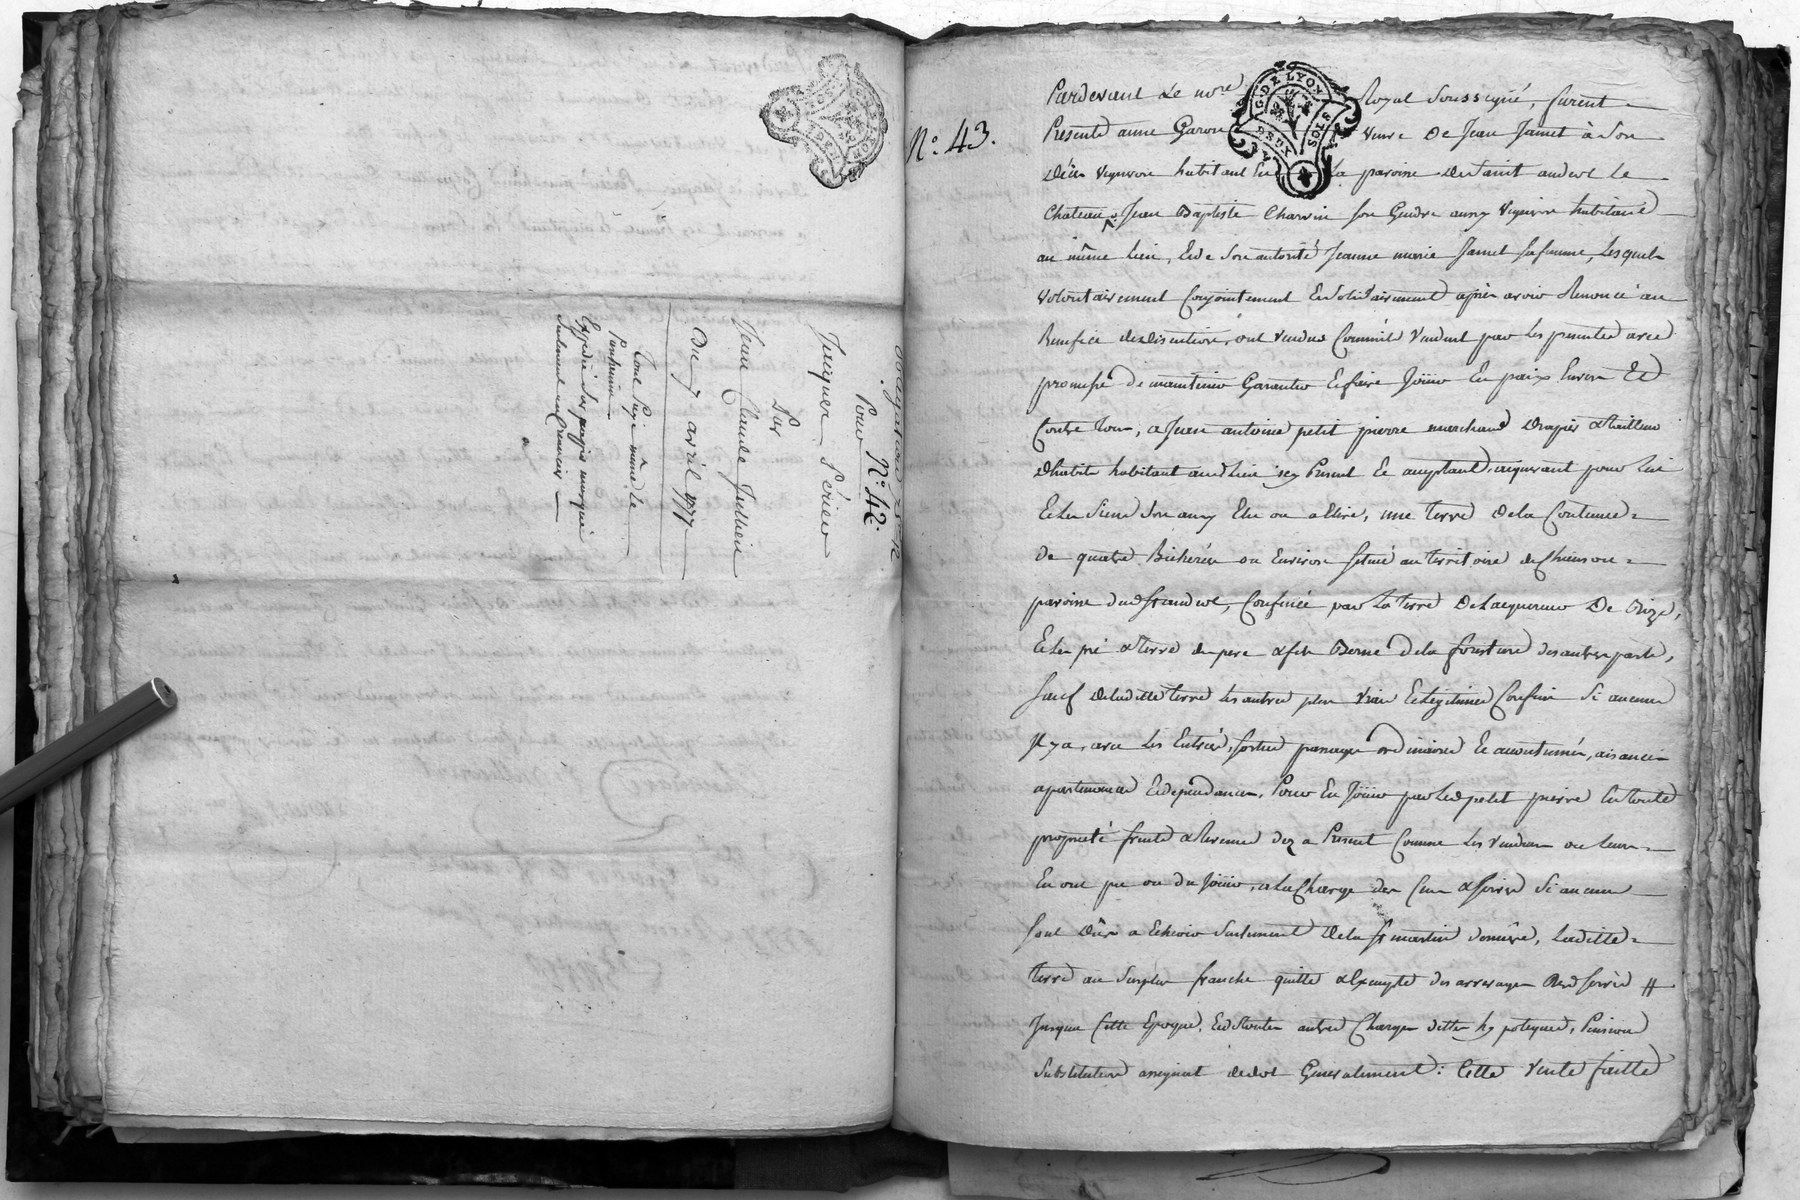 Obligation
Pour N.o 42.
Jacques Périer
Par
Jean Claude Jullien
Du 7 avril 1777
Tout Payé même le
Parchemin
Expédié Sur papier marqué
Seulement au Créancier
N.o 43.
G. DE LYON
DEUX SOLS
Pardevant Le nore Royal Soussigné, furent
Présents anne Garon veuve De Jean Jamet à Son
Décès vigneron habitant En La paroisse De Saint andeol Le
Chateau, Jean Baptiste Charvin Son Gendre aussy vigneron habitant
au même Lieu, Et de Son autorité Jeanne marie Jamet Sa femme, Lesquels
volontairement Conjointement Et Solidairement après avoir Renoncé au
Benefice de discution, ont vendus Comm'ils vendent par Les presentes avec
promesse De maintenir Garantir Et faire Jouir En paix Envers Et
Contre tous, a Jean antoine petit pierre marchand Drapier & tailleur
D'habits habitant aud Lieu icy Present Et acceptant, acquerant pour Lui
Et Les Siens Son amy Elu ou a Elire, une terre De la Contenue
De quatre Bicherées ou Environ Située au territoire de Chieusou
paroisse dud St andeol, Confinée par La terre De Lacquereur De Bize,
Et Les pré & terre des pere & fils Berne De la foresture des autres parts,
Sauf De Laditte terre Les autres plus vrais Et Legitimes Confins Si aucuns
Il y a, avec Les Entrées, Sorties passages ordinaires Et accoutumés, aisances
apartenances Et dependances, Pour En Jouir par Led petit pierre En toute
proprieté fruits & Revenus des a Present Comme Les Vendeurs ou Leurs
En ont pu ou du Jouir, a La Charge des Cens & Servis Si aucuns
Sont Dûs a Echeoir Seulement De La St martin derniere, Laditte
terre au Surplus franche quitte & Exempte des arrerages Desd Servis
Jusques Cette Epoque, Et de toutes autres Charges dettes hypoteques, Pensions
Substitution assignat de dot Generalement: Cette Vente faitte